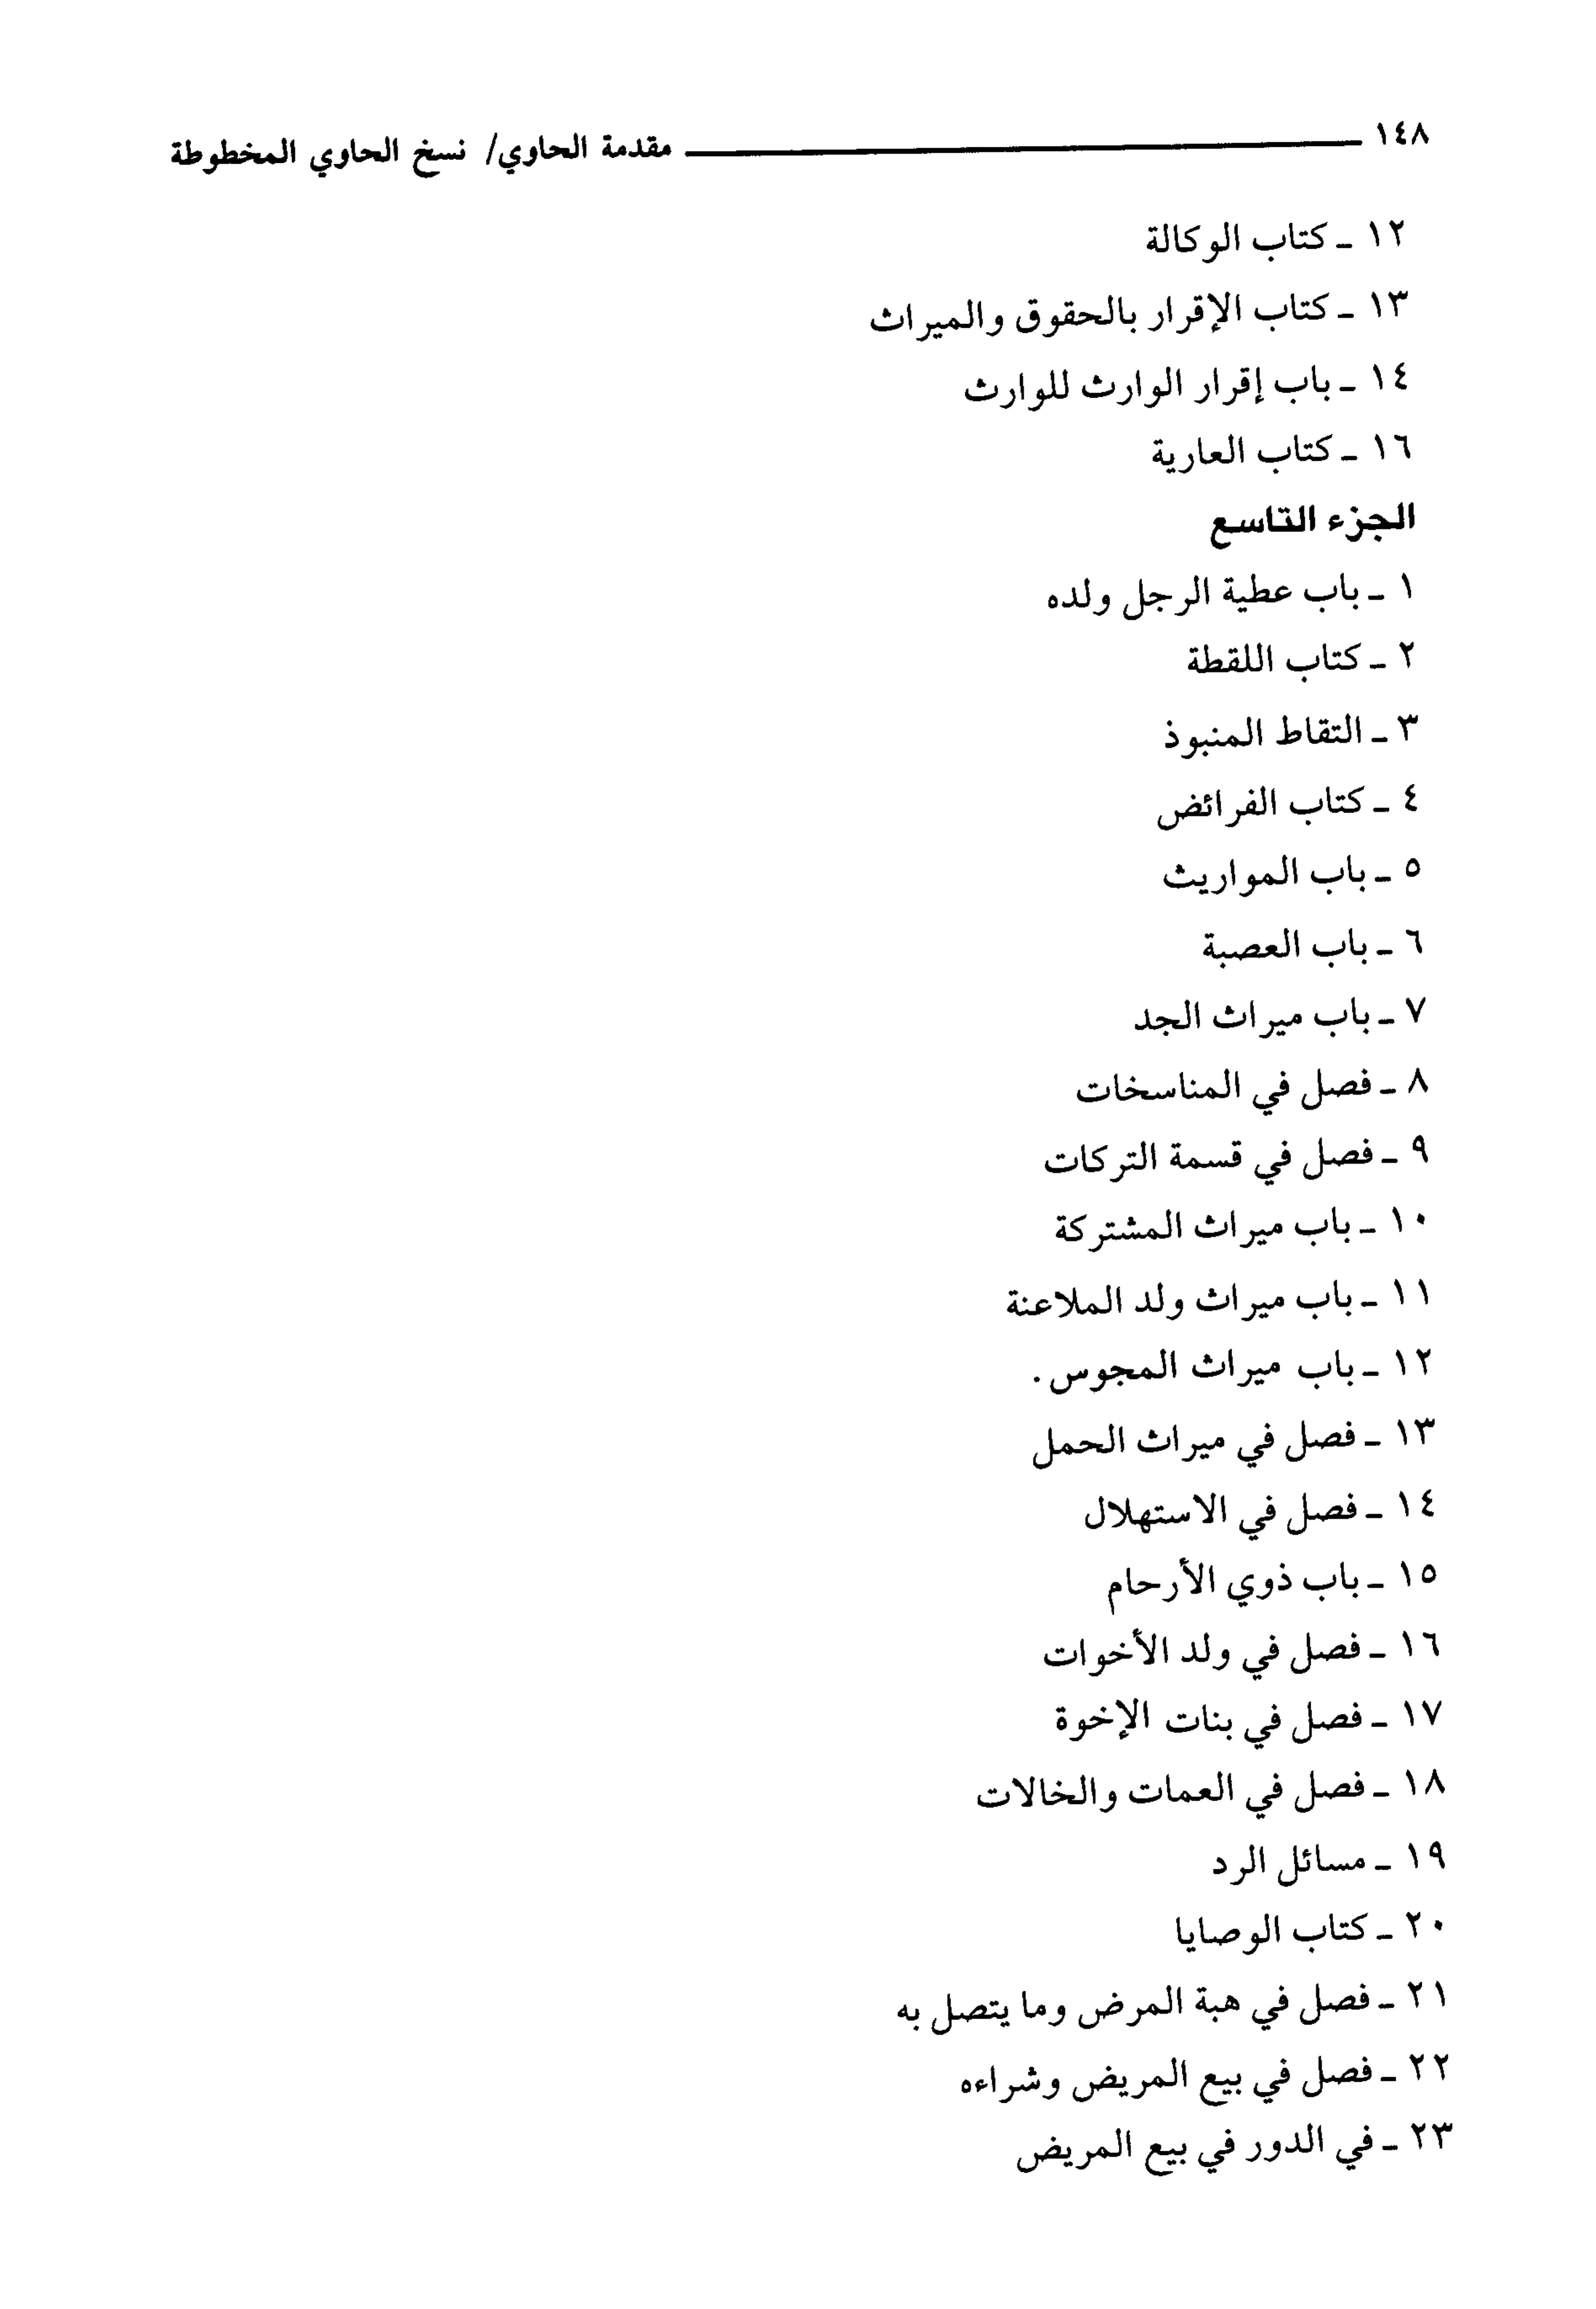 ١٤٨ مقدمة الحاوي/ نسخ الحاوي المخطوطة
١٢ - كتاب الوكالة
١٣ - كتاب الإقرار بالحقوق والميراث
١٤ - باب إقرار الوارث للوارث
١٦ - كتاب العارية
الجزء التاسع
١ - باب عطية الرجل ولده
٢ - كتاب اللقطة
٣ - التقاط المنبوذ
٤ - كتاب الفرائض
٥ - باب المواريث
٦ - باب العصبة
٧ - باب ميراث الجد
٨ - فصل في المناسخات
٩ - فصل في قسمة التركات
١٠ - باب ميراث المشتركة
١١ - باب ميراث ولد الملاعنة
١٢ - باب ميراث المجوس.
١٣ - فصل في ميراث الحمل
١٤ - فصل في الاستهلال
١٥ - باب ذوي الأرحام
١٦ - فصل في ولد الأخوات
١٧ - فصل في بنات الإخوة
١٨ - فصل في العمات والخالات
١٩ - مسائل الرد
٢٠ - كتاب الوصايا
٢١ - فصل في هبة المرض وما يتصل به
٢٢ - فصل في بيع المريض وشراءه
٢٣ - في الدور في بيع المريض